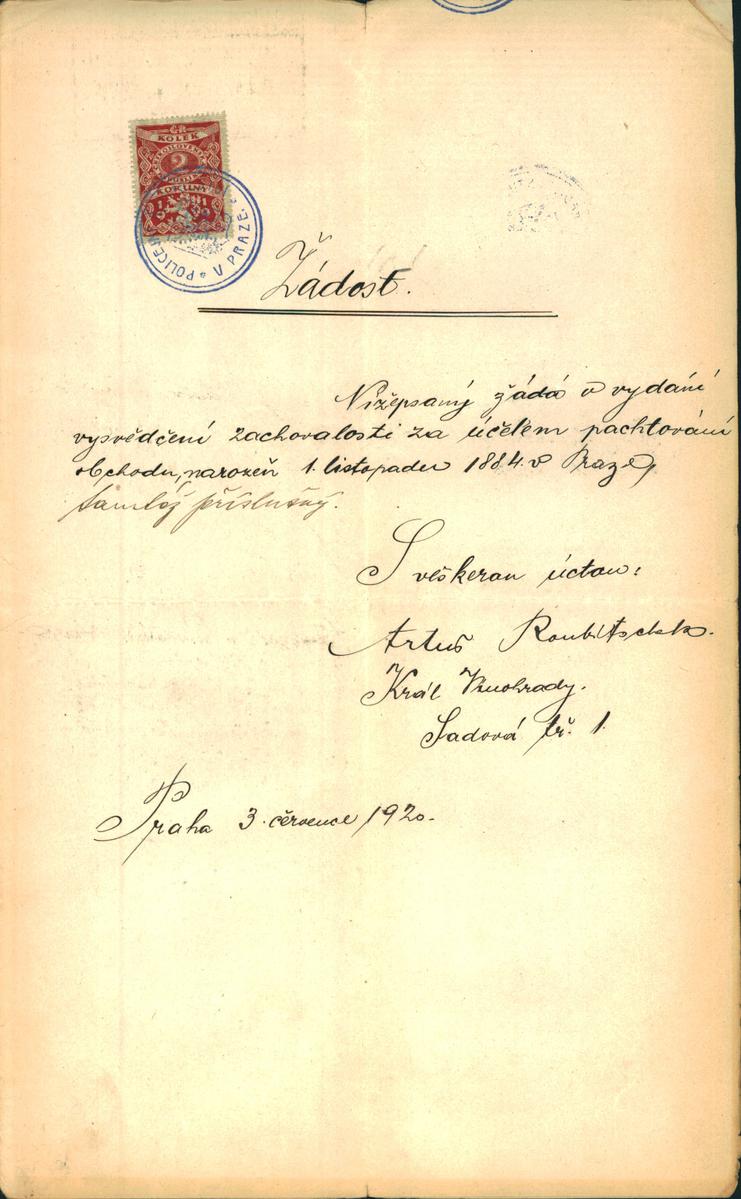 ČR
KOLEK
ČESKOSLOVENSKÝ
2
KORUNY
1919
POLICEJNÍ
V PRAZE.
Žádost.
Nížepsaný žádá o vydání
vysvědčení zachovalosti za účelem pachtování
obchodu, narozeň 1. listopadu 1884. v Praze,
tamtéž příslušný.
S veškerou úctou:
Artuš Roubitschek.
Král Vinohrady.
Sadová tř. 1.
Praha 3. července 1920.